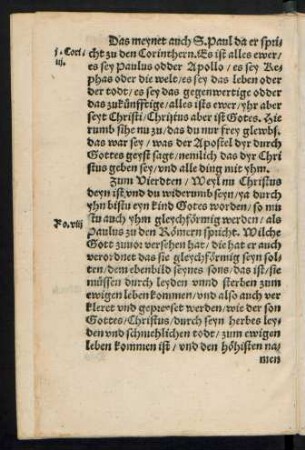 Das meynet auch S. Paul da er spri-
j. Cori⸗
iij.
cht zu den Corinthern. Es ist alles ewer/
es sey Paulus odder Apollo/ es sey Ke-
phas oder die welt/ es sey das leben oder
der todt/ es sey das gegenwertige odder
das zukünfftige/ alles ists ewer/ yhr aber
seyt Christi/ Christus aber ist Gotes. Hie
rumb sihe nu zu/ das du nur frey glewbst.
das war sey/ was der Apostel dyr durch
Gottes geyst sagt/ nemlich das dyr Chri
stus geben sey/ vnd alle ding mit yhm.
Zum Vierdten/ Weyl nu Christus
deyn ist/ vnd du widerumb seyn/ ya durch
yhn bistu eyn kind Gotes worden/ so mů
stu auch yhm gleychförmig werden/ als
Ro. viij
Paulus zu den Römern spricht. Wilche
Gott zuuor versehen hat/ die hat er auch
verordnet das sie gleychförmig seyn sol-
ten/ dem ebenbild seynes sons/ das ist/ sie
müssen durch leyden vnnd sterben zum
ewigen leben kommen/ vnd also auch ver
kleret vnd gepreyset werden/ wie der son
Gottes/ Christus/ durch seyn herbes ley-
den vnd schmehlichen todt/ zum ewigen
leben kommen ist/ vnd den höhisten na-
men